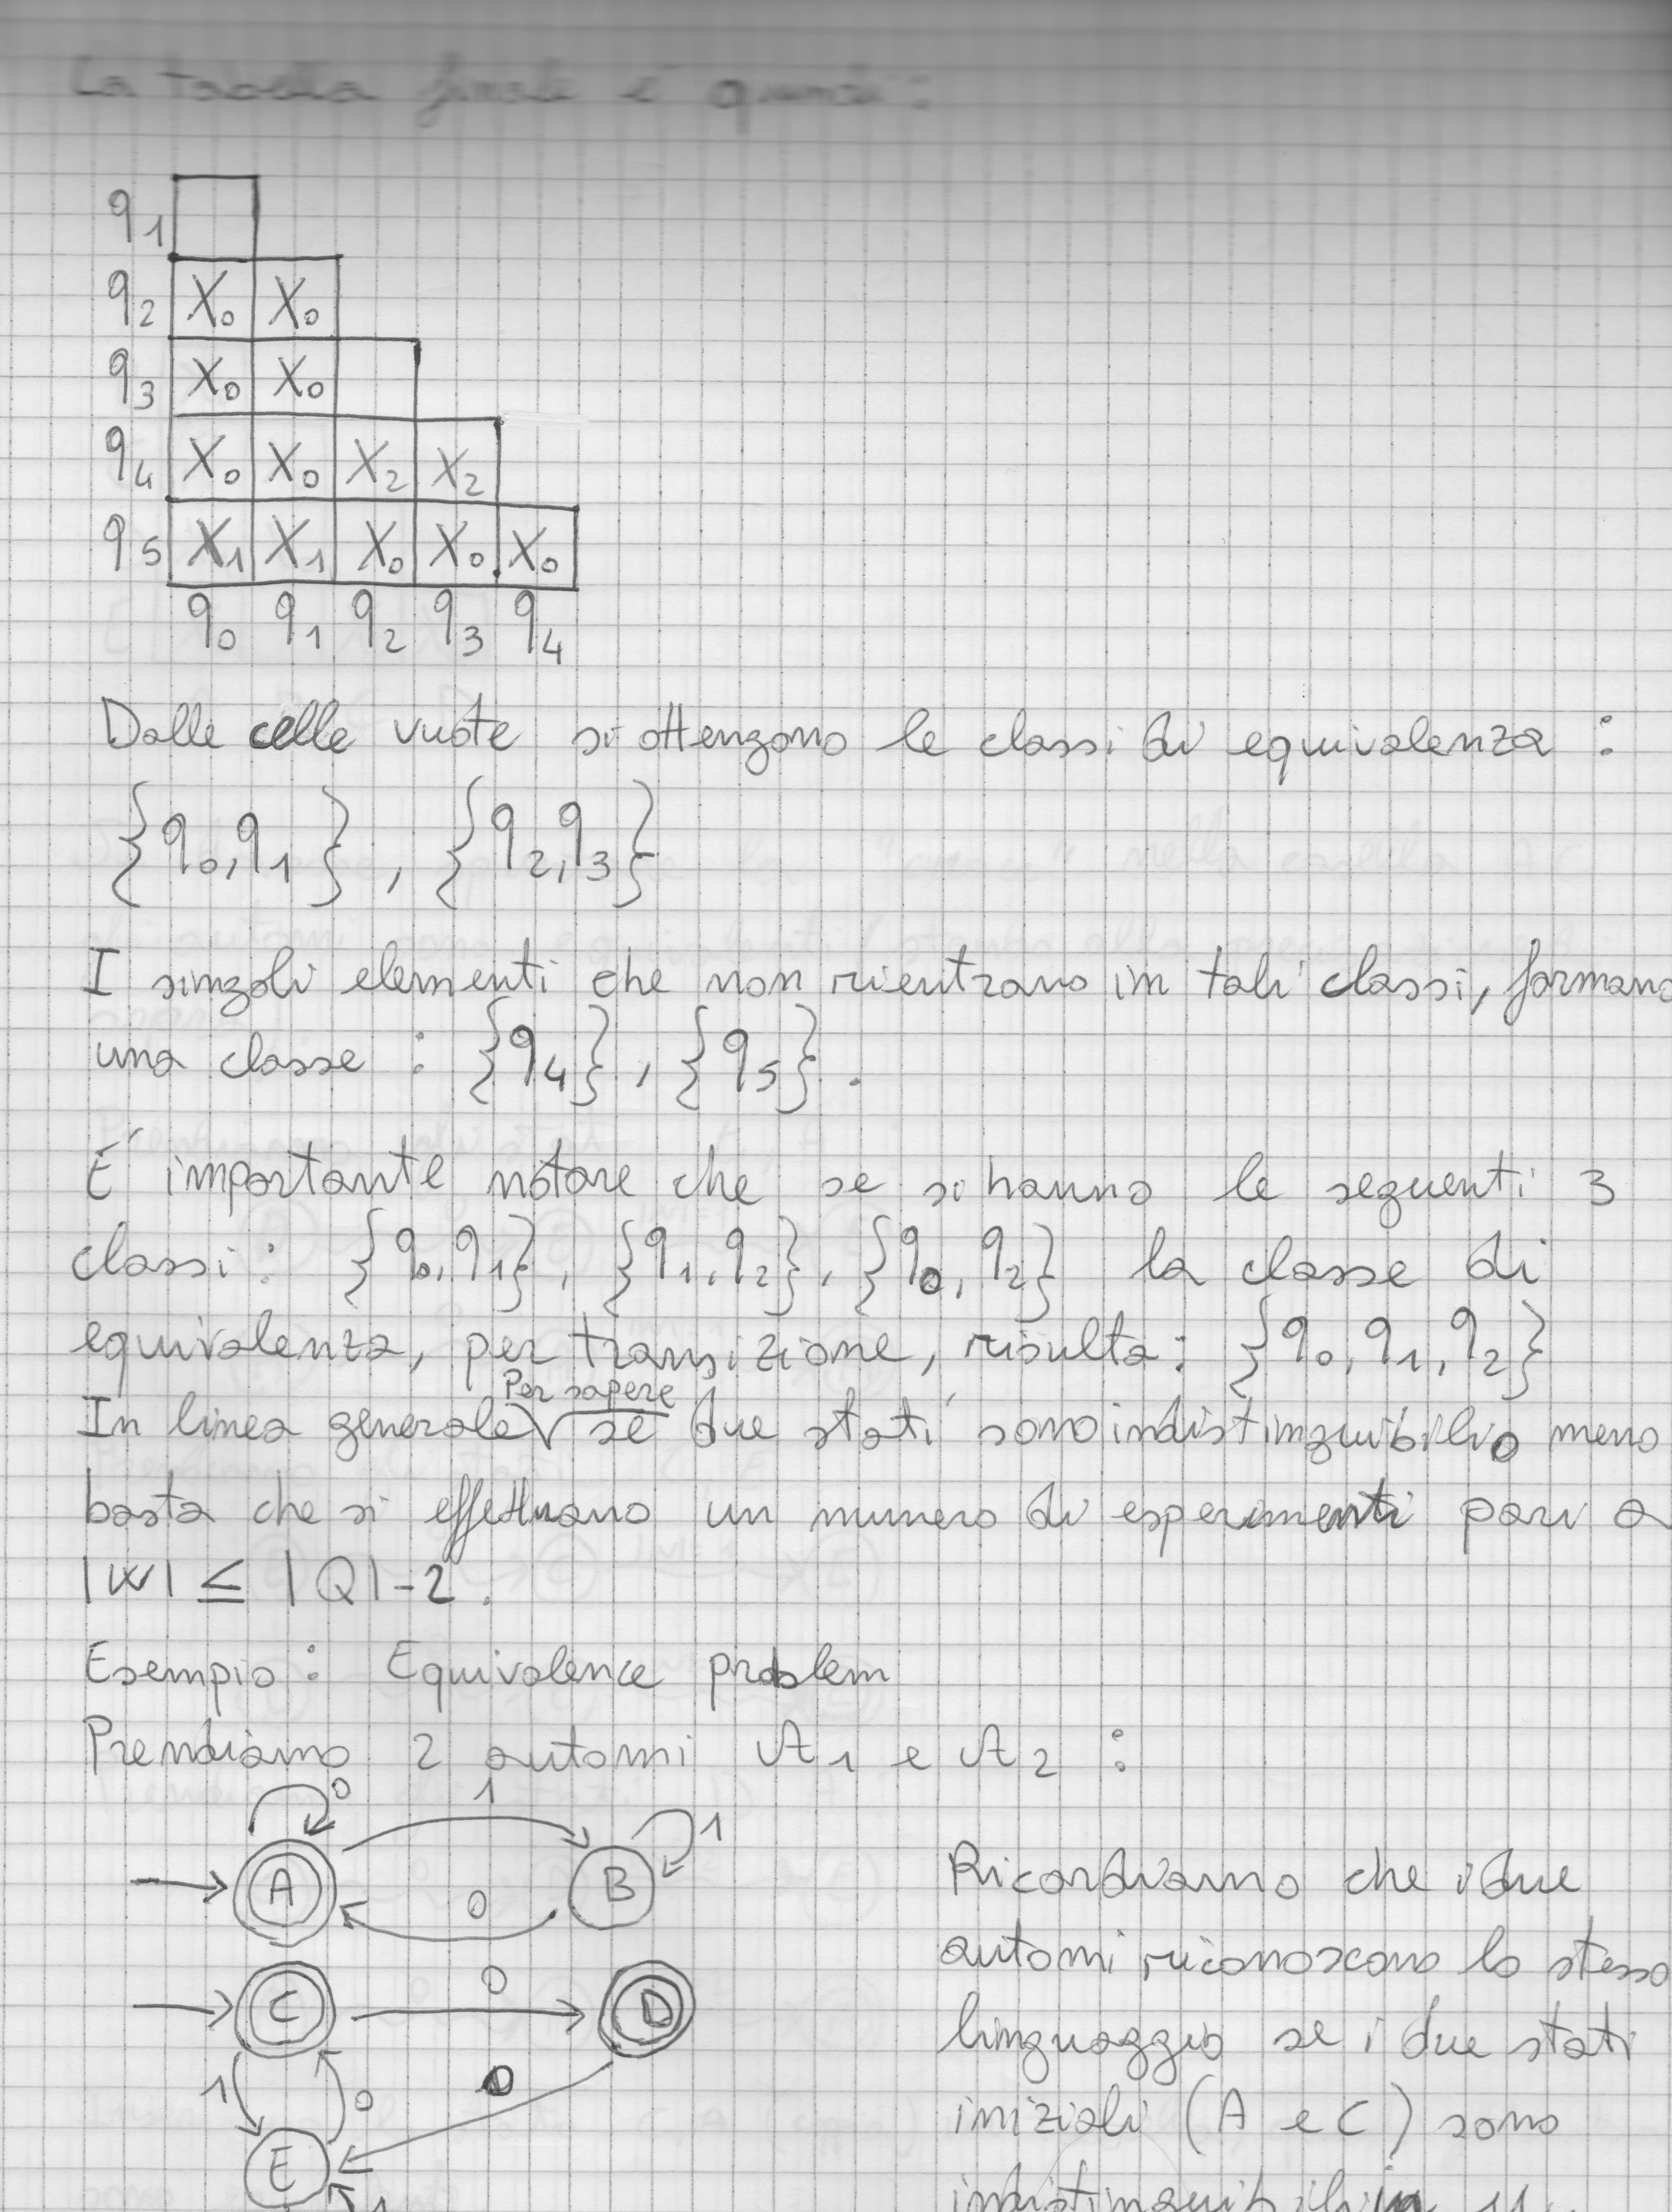 La tabella finale è quindi:
q1
q2 X0 X0
q3 X0 X0
q4 X0 X0 X2 X2
q5 X1 X1 X0 X0 X0
q0 q1 q2 q3 q4
Dalle celle vuote si ottengono le classi di equivalenza:
{q0,q1}, {q2,q3}
I singoli elementi che non rientrano in tali classi, formano
una classe: {q4}, {q5}.
É importante notare che se si hanno le seguenti 3
classi: {q0,q1}, {q1,q2}, {q0,q2} la classe di
equivalenza, per transizione, risulta: {q0,q1,q2}
Per sapere
In linea generale se due stati sono indistinguibili o meno
basta che si effettuano un numero di esperimenti pari a
|w| ≤ |Q|-2.
Esempio: Equivalence problem
Prendiamo 2 automi A1 e A2:
0 1 1
A B
0
0
C D
1 0 0
E
1
Ricordiamo che i due
automi riconoscono lo stesso
linguaggio se i due stati
iniziali (A e C) sono
indistinguibili